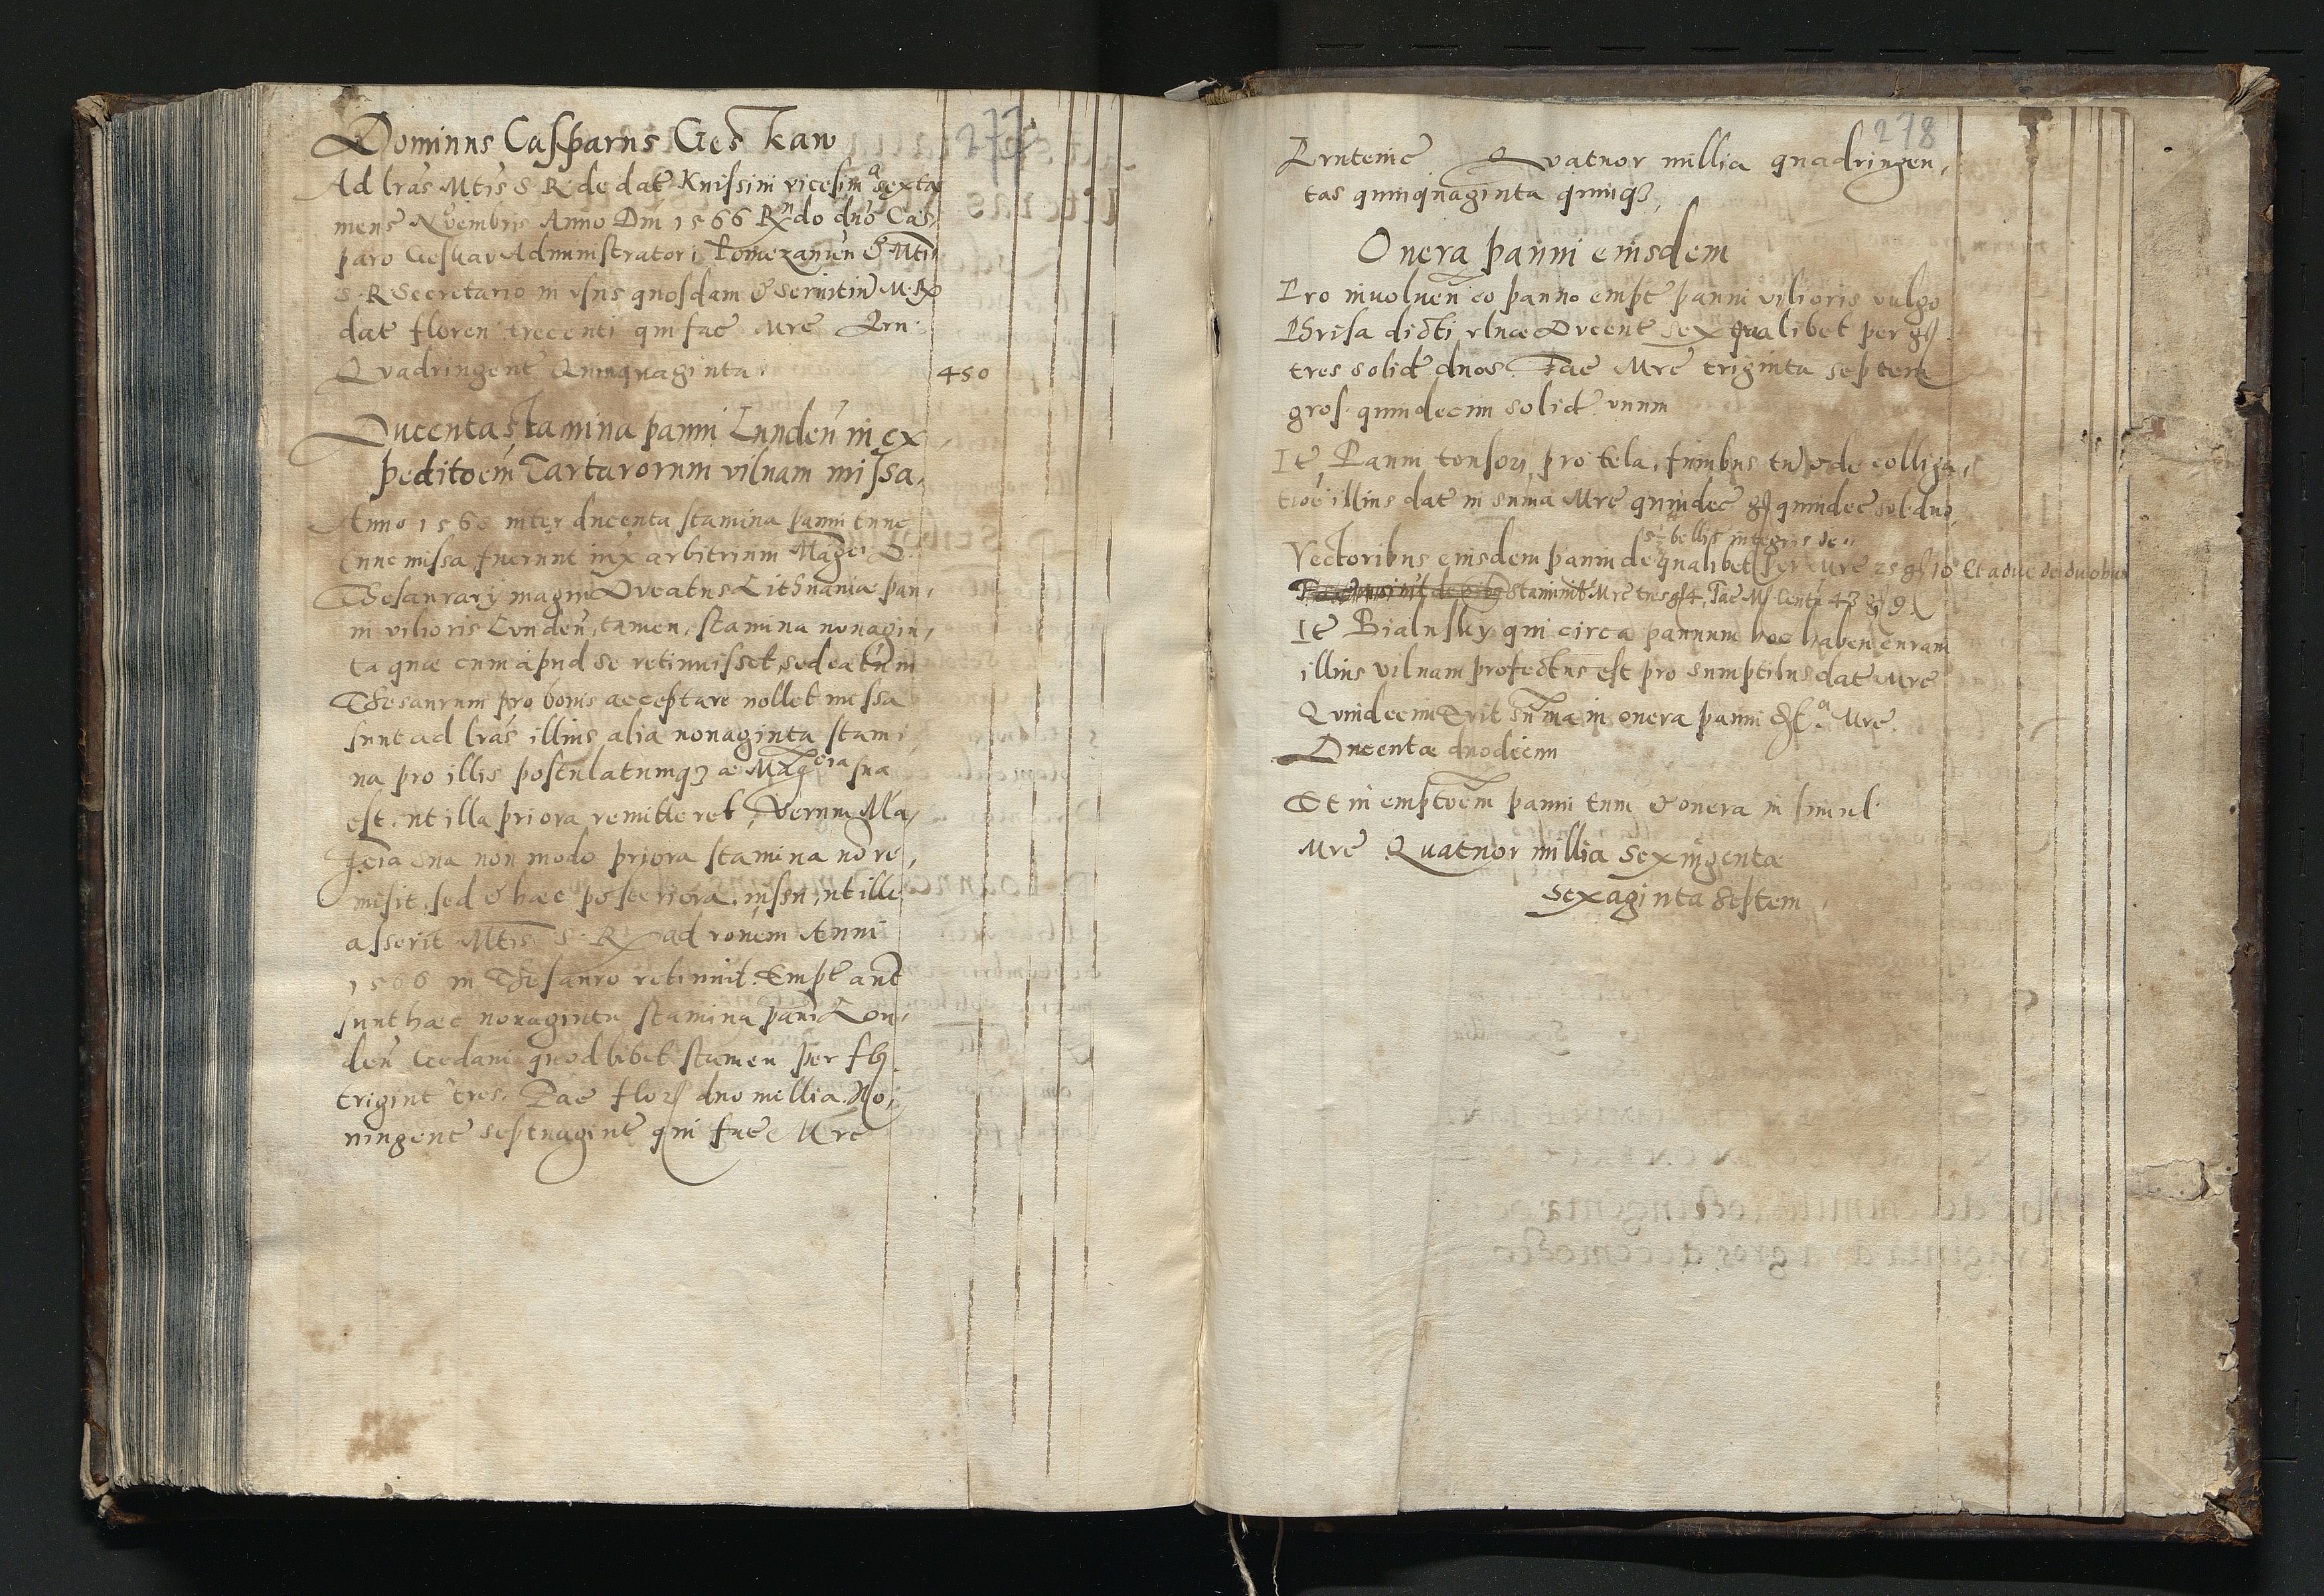 277
Dominus Casparus Geskaw
Ad lras Mtis S R de dat Knissini vicesima sexta
mens Nouembris Anno Dni 1566 Rndo dno Cas,
paro Geskau Administratori Pomezanien & Mtis
S R Secretario in vsus quosdam & seruitiu M. Rx
dat floren trecenti qui fac Mrc Prn.
Quadringent Quinquaginta. 450
Ducenta stamina panni Lunden in ex
peditoem Tartarorum vilnam missa.
Anno 1560 inter ducenta stamina panni tunc
tunc missa fuerunt iux arbitrium Magci D.
Thesaurarij magni Ducatus Lithuaniæ pan,
ni vilioris Lunden, tamen, stamina nonagin,
ta quæ cum apud se retinuisset, sed ea tum in
Thesaurum pro bonis acceptare nollet missa
sunt ad lras illius alia nonaginta stami
na pro illis postulatumq3 a Magcia sua
est. ut illa priora remitteret, Verum Ma,
gcia sua non modo priora stamina no re,
misit. sed & hæc posteriora. iussu, ut ille
asserit Mtis S. Rx ad ronem Anni
1566 in Thesauro retinuit. Empt aut
sunt hæc nonaginta stamina pani Lon,
den Gedani quodlibet stamen per fl
trigint tres. Fac flor duo millia No,
ningent septuagint qui fac Mrc
278
Prutenic Quatuor millia quadringen,
tas quinquaginta quinq3,
Onera panni eiusdem
Pro inuoluen eo panno empt panni vilioris vulgo
Phrisa dicti vlnæ Ducent sex qualibet per gs
tres solid duos. Fac Mrc triginta septem
gros. quindecim solid. vnum
It Panni tonsori pro tela, funibus tu & de colliga,
tioe illius dat in suma Mrc quindec gs quindec sol. duo
5½ bellis integris de
Vectoribus eiusdem panni de qualibet Per Mrc 25 gs 10 Et aduc de duobus
Staminib Mrc tres gs 4. Fac Ms Centu 43 gs 9
It Bialusky qui circa pannum hoc haben curam
illius vilnam profectus est pro sumptibus dat Mrc
Quindecim Erit Suma in onera panni Mrc.
Ducentæ duodecim
Et in emptoem panni tum & onera in simul
Mrc Quatuor millia Sexingenta
Sexaginta Septem